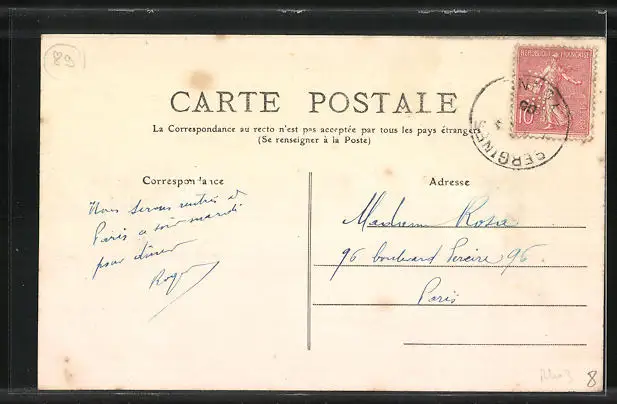 89
RÉPUBLIQUE FRANÇAISE
10
SERGINES
CARTE POSTALE
La Correspondance au recto n'est pas acceptée par tous les pays étrangers
(Se renseigner à la Poste)
Correspondance
Adresse
Nous serons rentrés à
Paris ce soir mardi
pour dîner
Roger
Madame Rosa
96 boulevard Pereire 96
Paris
8